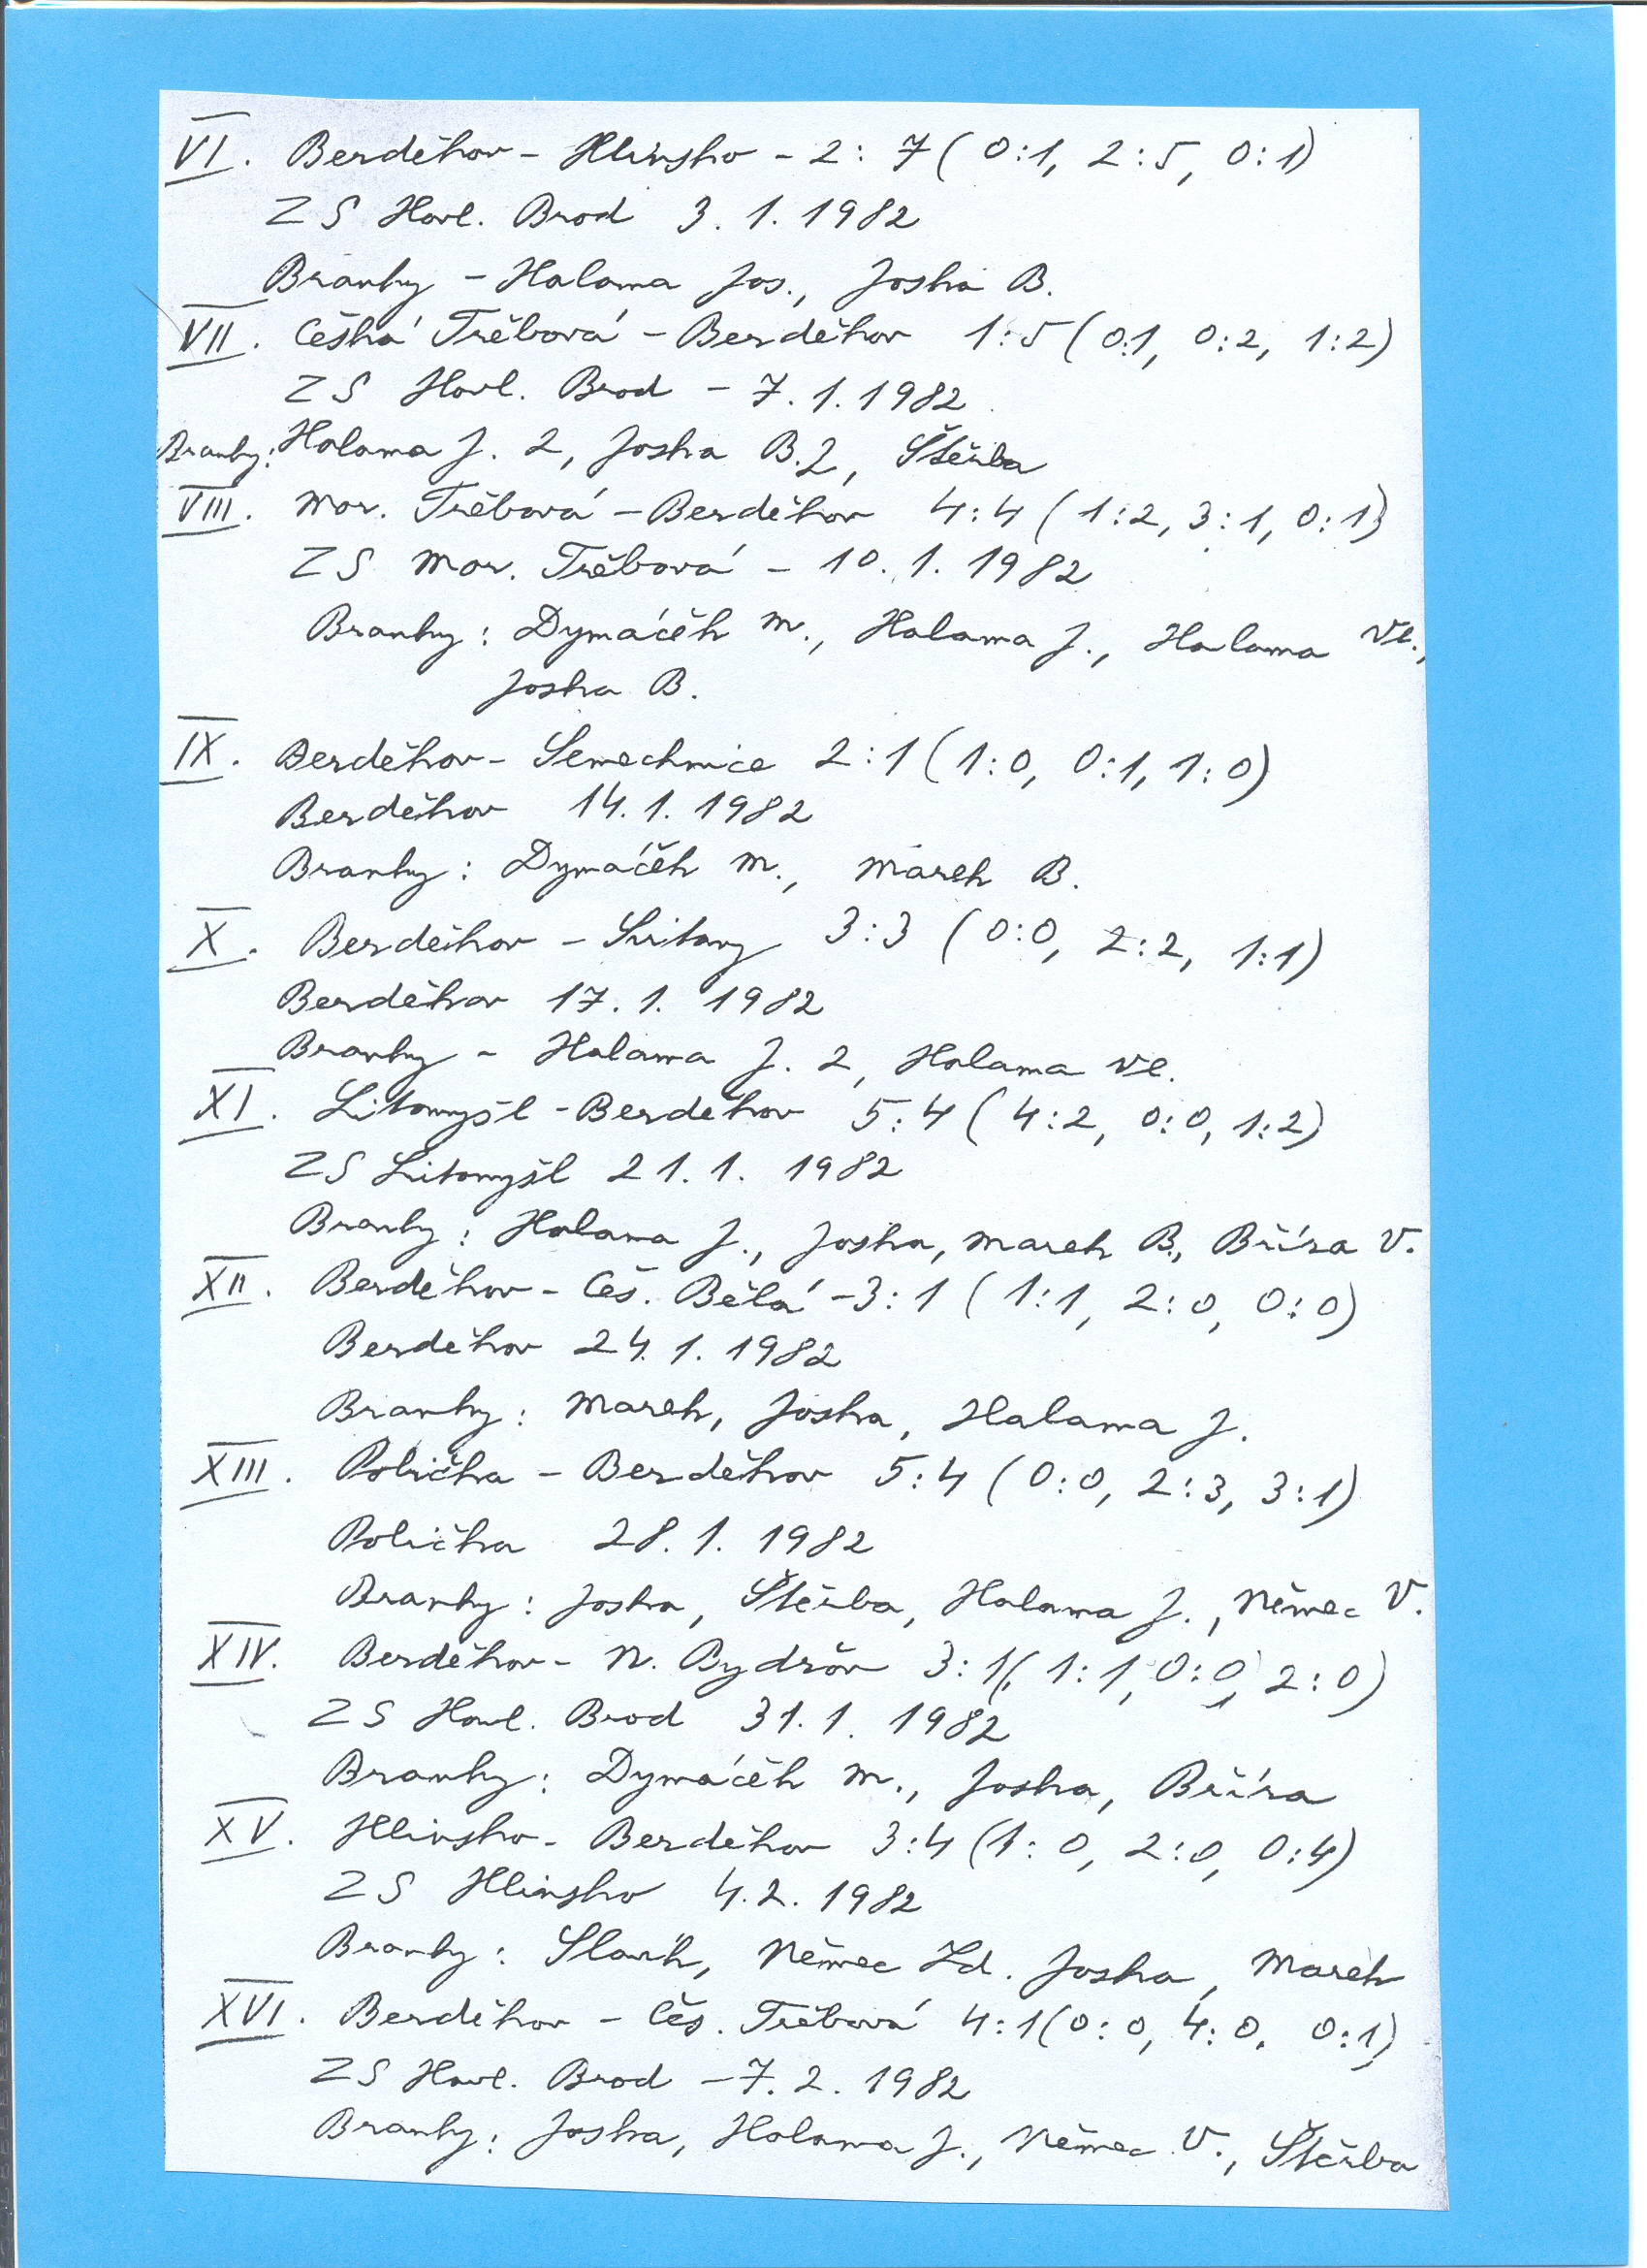 VI. Berděkov - Hlinsko - 2:7 (0:1, 2:5, 0:1)
ZS Havl. Brod 3.1.1982
Branky - Halama Jos., Joska B.
VII. Česká Třebová - Berděkov 1:5 (0:1, 0:2, 1:2)
ZS Havl. Brod - 7.1.1982
Branky: Halama J. 2, Joska B. 2, Štěrba
VIII. Mor. Třebová - Berděkov 4:4 (1:2, 3:1, 0:1)
ZS Mor. Třebová - 10.1.1982
Branky: Dymáček M., Halama J., Halama Vl.,
Joska B.
IX. Berděkov - Semechnice 2:1 (1:0, 0:1, 1:0)
Berděkov 14.1.1982
Branky: Dymáček M., Marek B.
X. Berděkov - Svitavy 3:3 (0:0, 2:2, 1:1)
Berděkov 17.1.1982
Branky - Halama J. 2, Halama Vl.
XI. Litomyšl - Berděkov 5:4 (4:2, 0:0, 1:2)
ZS Litomyšl 21.1.1982
Branky: Halama J., Joska, Marek B., Bříza V.
XII. Berděkov - Čes. Bělá - 3:1 (1:1, 2:0, 0:0)
Berděkov 24.1.1982
Branky: Marek, Joska, Halama J.
XIII. Polička - Berděkov 5:4 (0:0, 2:3, 3:1)
Polička 28.1.1982
Branky: Joska, Štěrba, Halama J., Němec V.
XIV. Berděkov - N. Bydžov 3:1 (1:1, 0:0, 2:0)
ZS Havl. Brod 31.1.1982
Branky: Dymáček M., Joska, Bříza
XV. Hlinsko - Berděkov 3:4 (1:0, 2:0, 0:4)
ZS Hlinsko 4.2.1982
Branky: Slavík, Němec Zd. Joska, Marek
XVI. Berděkov - Čes. Třebová 4:1 (0:0, 4:0, 0:1)
ZS Havl. Brod - 7.2.1982
Branky: Joska, Halama J., Němec V., Štěrba